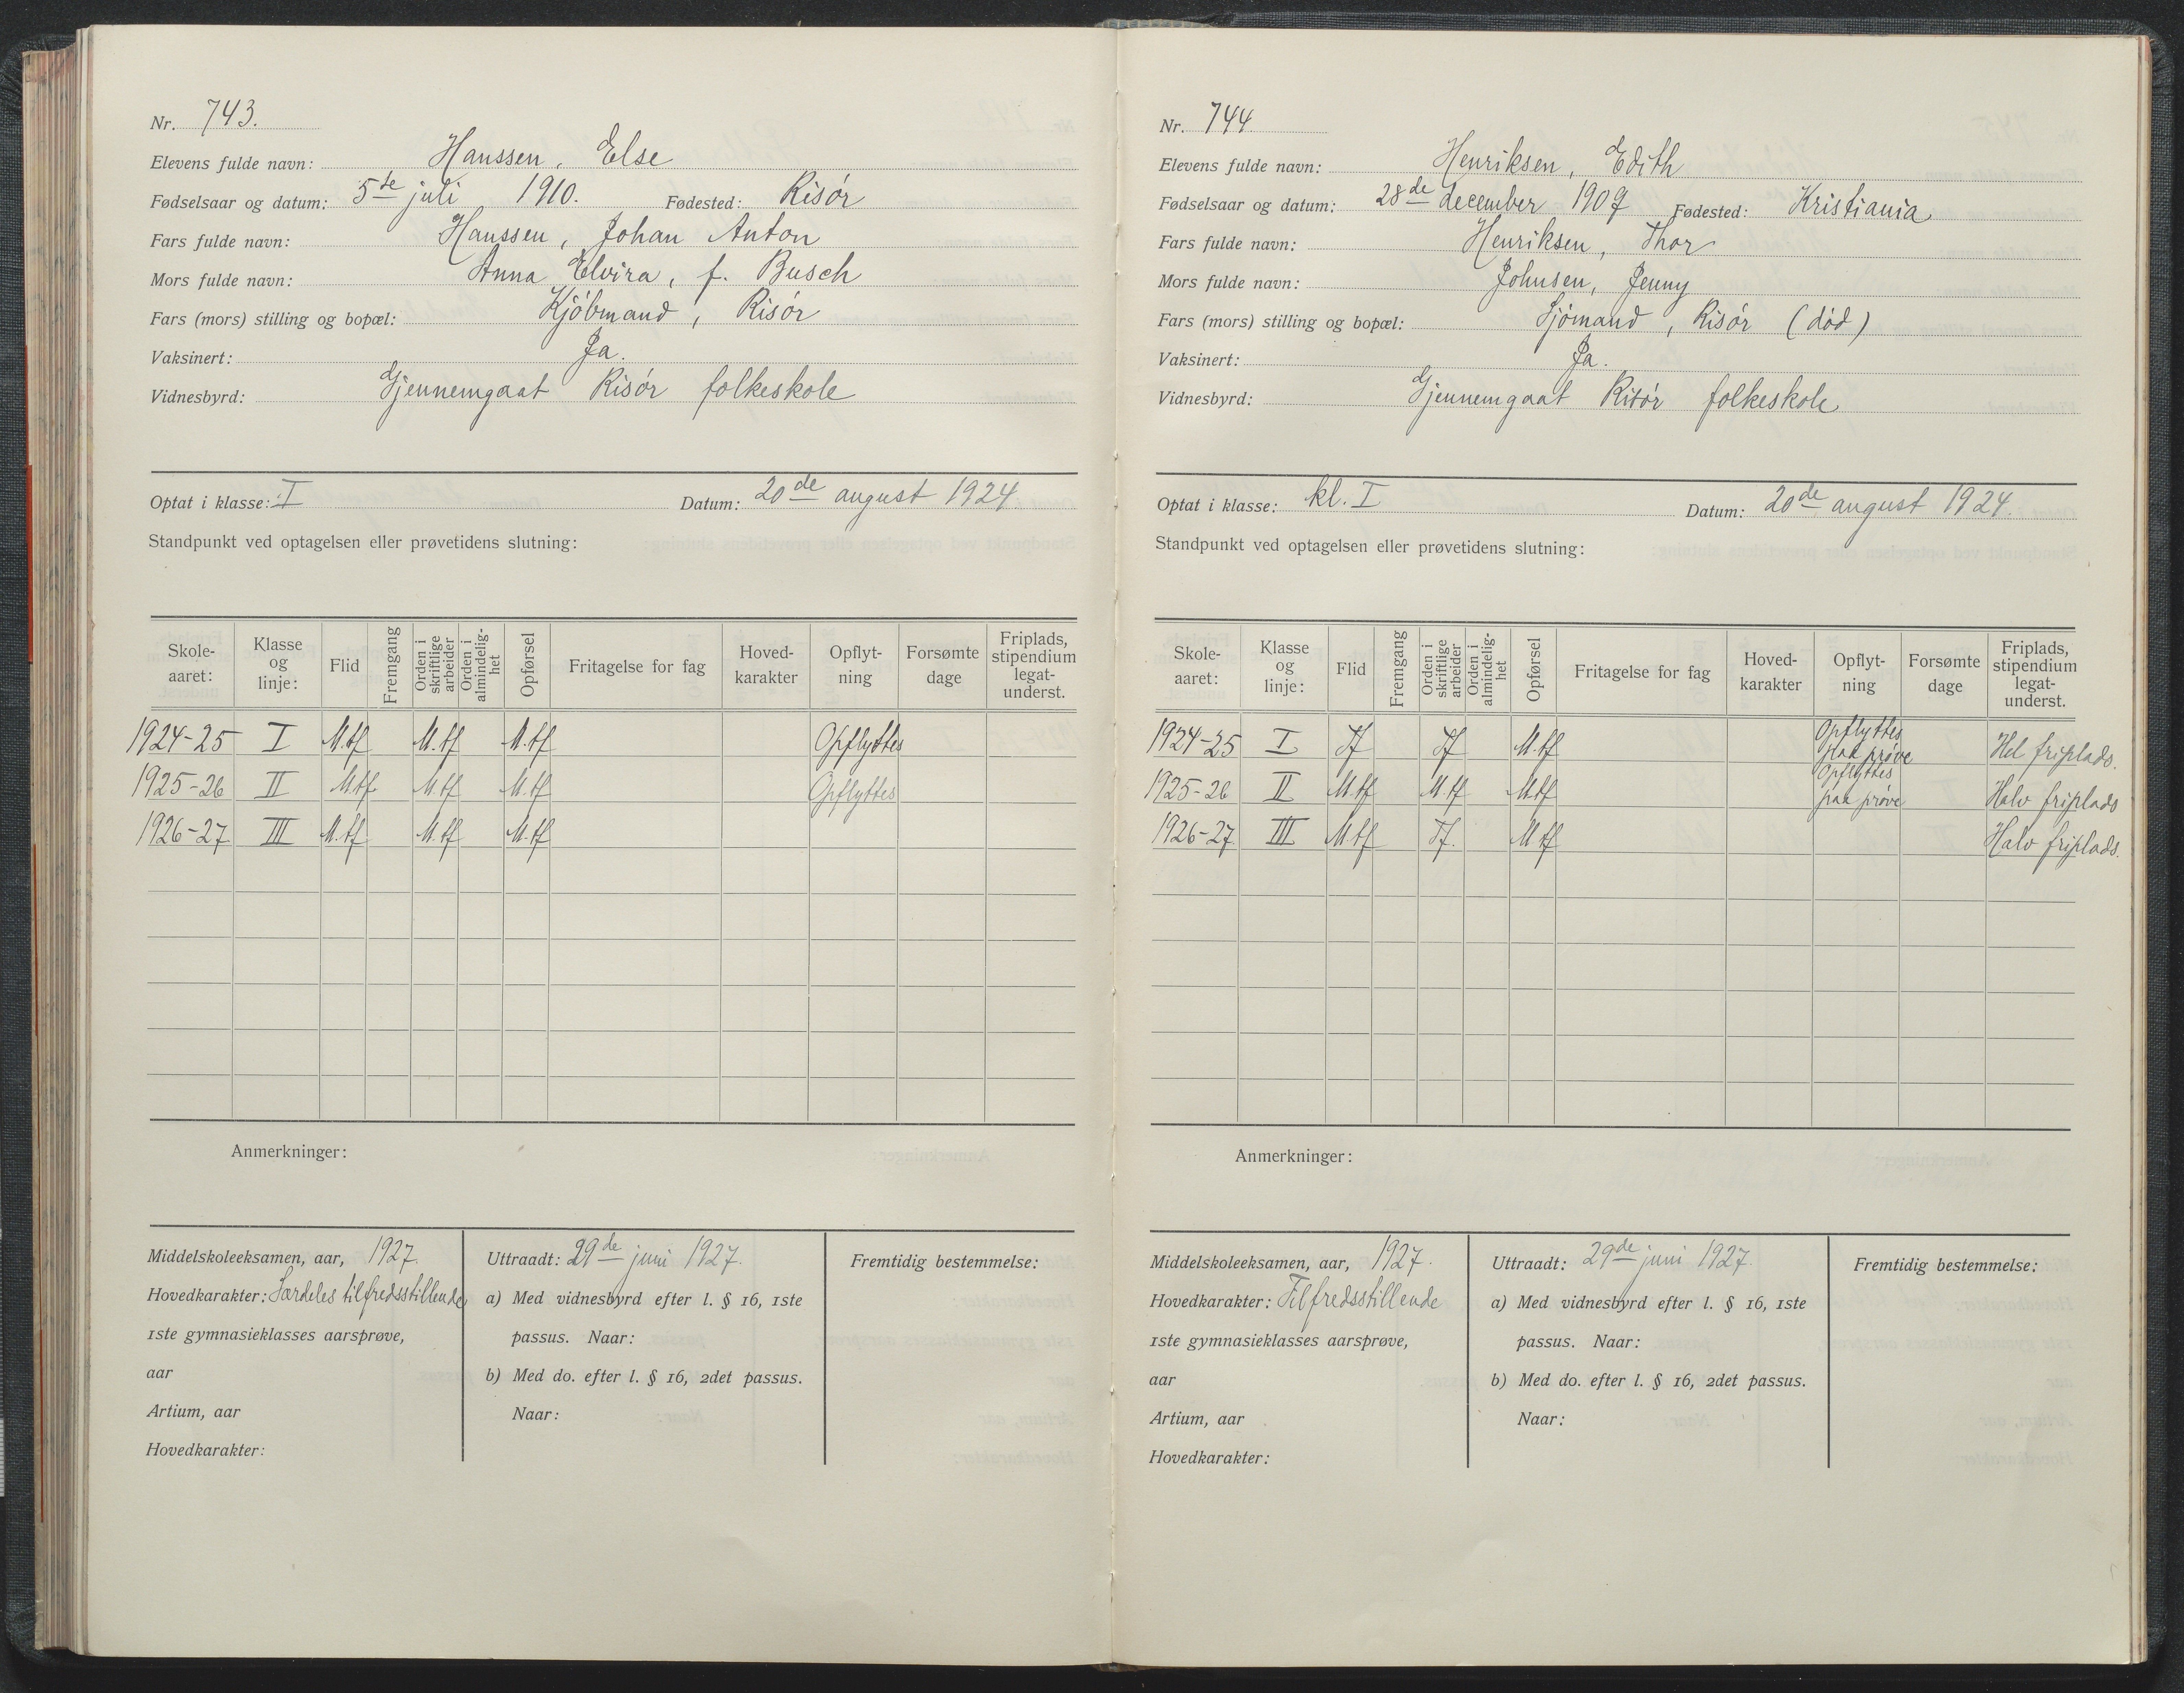 Nr. 743.
Elevens fulde navn: Hanssen, Else
Fødselsaar og datum: 5te juli 1910. Fødested: Risör
Fars fulde navn: Hanssen, Johan Anton
Mors fulde navn: Anna Elvira, f. Busch
Fars (mors) stilling og bopæl: Kjöbmand, Risör
Vaksinert: Ja.
Vidnesbyrd: Gjennemgaat Risör folkeskole
Optat i klasse: I Datum: 20de august 1924.
Standpunkt ved optagelsen eller prøvetidens slutning:
Skole-aaret: Klasse og linje: Flid Fremgang Orden i skriftlige arbeider Orden i almindelig-het Opførsel Fritagelse for fag Hoved-karakter Opflyt-ning Forsømte dage Friplads, stipendium legat-underst.
1924-25 I M.tf M.tf M.tf Opflyttes
1925-26 II M.tf. M.tf M.tf Opflyttes
1926-27 III M.tf M.tf M.tf
Anmerkninger:
Middelskoleeksamen, aar, 1927.
Hovedkarakter: Særdeles tilfredsstillende
1ste gymnasieklasses aarsprøve,
aar
Artium, aar
Hovedkarakter:
Uttraadt: 29de juni 1927.
a) Med vidnesbyrd efter l. § 16, 1ste
passus. Naar:
b) Med do. efter l. § 16, 2det passus.
Naar:
Fremtidig bestemmelse:
Nr. 744.
Elevens fulde navn: Henriksen, Edith
Fødselsaar og datum: 28de december 1909 Fødested: Kristiania
Fars fulde navn: Henriksen, Thor
Mors fulde navn: Johnsen, Jenny
Fars (mors) stilling og bopæl: Sjömand, Risör (död)
Vaksinert: Ja.
Vidnesbyrd: Gjennemgaat Risör folkeskole
Optat i klasse: kl. I Datum: 20de august 1924.
Standpunkt ved optagelsen eller prøvetidens slutning:
Skole-aaret: Klasse og linje: Flid Fremgang Orden i skriftlige arbeider Orden i almindelig-het Opførsel Fritagelse for fag Hoved-karakter Opflyt-ning Forsømte dage Friplads, stipendium legat-underst.
1924-25 I Tf Tf M.tf Opflyttes paa prøve Hel friplads.
1925-26 II M.tf M.tf M.tf Opflyttes paa prøve Halv friplads
1926-27 III M.tf Tf. M.tf Halv friplads.
Anmerkninger:
Middelskoleeksamen, aar, 1927.
Hovedkarakter: Tilfredsstillende
1ste gymnasieklasses aarsprøve,
aar
Artium, aar
Hovedkarakter:
Uttraadt: 29de juni 1927.
a) Med vidnesbyrd efter l. § 16, 1ste
passus. Naar:
b) Med do. efter l. § 16, 2det passus.
Naar:
Fremtidig bestemmelse: